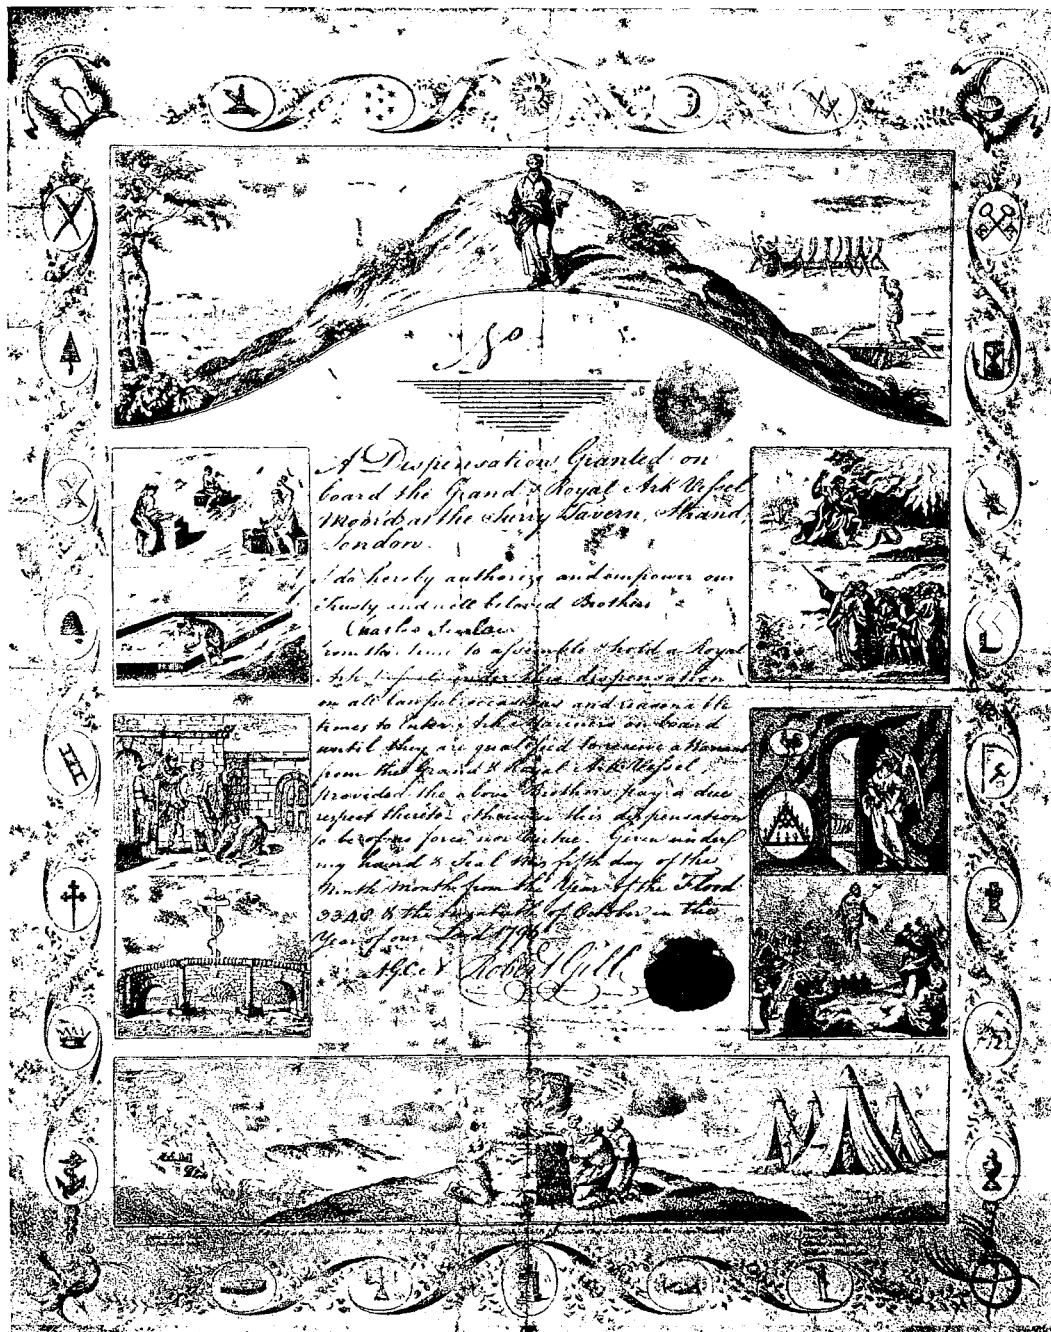 No
A Dispensation Granted on
board the Grand & Royal Ark Vessel
Moor'd at the Surry Tavern, Strand,
London.
I do hereby authorize and empower our
Trusty and well beloved Brothers
Charles
from this time to assemble & hold a Royal
Ark under this dispensation
on all lawful occasions and reasonable
times to enter the Mariners on board
until they are qualified to receive a Warrant
from the Grand & Royal Ark Vessel,
provided the above Brothers pay a due
respect thereto otherwise this dispensation
to be of no force nor virtue. Given under
my hand & Seal this fifth day of the
Ninth Month from the Year of the Flood
& the twentieth of October in the
Year of our Lord
Robert Gill